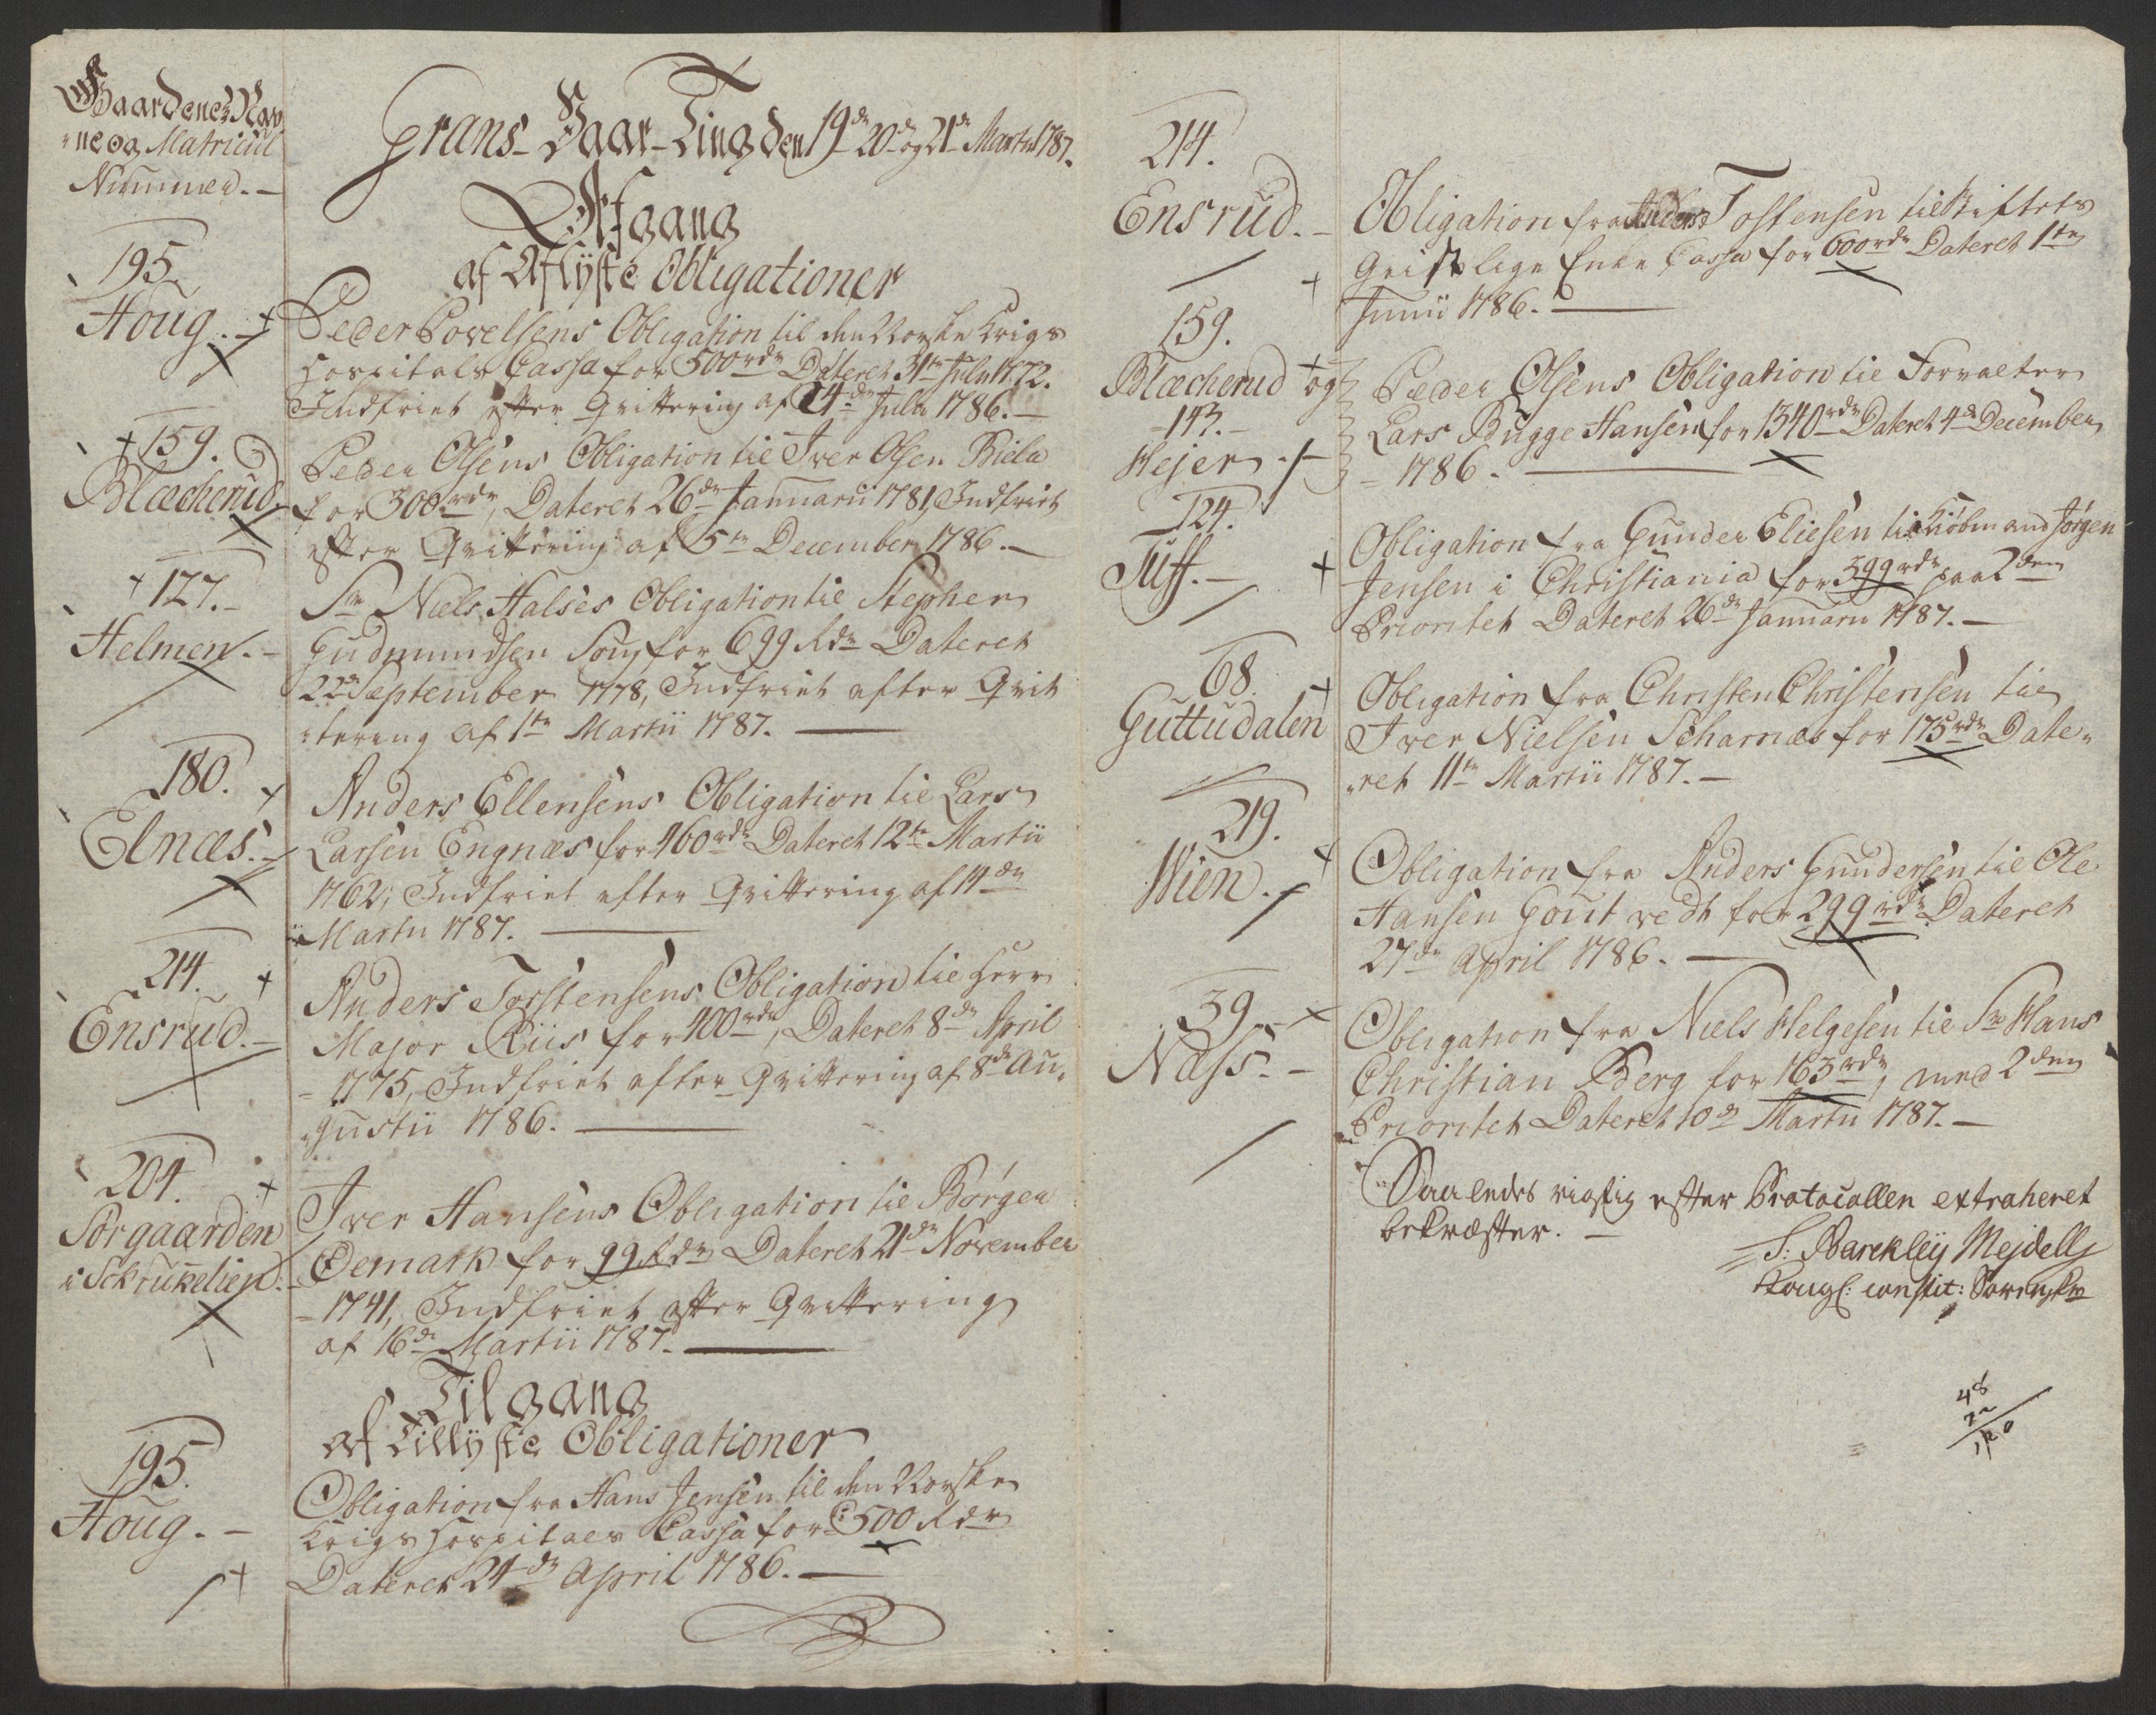 Gaardenes Nav
ne og Matricul
Nummer. -
Grans Vaar-Ting den 19de 20de og 21de Martii 1787.
Afgang
af Aflyste Obligationer
195.
Houg. -
Peder Povelsens Obligation til den Norske Krigs
Hospitals Cassa for 500 rdr Dateret 31te Julii 1772.
Indfriet efter Qvittering af 24de Julii 1786. -
159.
Blæcherud.
Peder Olsens Obligation til Iver Olsen Biela
for 300 rdr, Dateret 26de Januarii 1781, Indfriet
efter Qvittering af 5te December 1786. -
127. -
Helmen. -
Sr Niels Halses Obligation til Stephen
Gudmundsen for 699 Rdr Dateret
22de September 1778, Indfriet efter Qvit
tering af 1te Martii 1787. -
180.
Elnæs. -
Anders Ellensens Obligation til Lars
Larsen Engnæs for 460 rdr Dateret 12te Martii
1762, Indfriet efter Qvittering af 14de
Martii 1787. -
214.
Ensrud. -
Anders Torstensens Obligation til Herr
Major Riis for 400 rdr, Dateret 8de April
1775, Indfriet efter Qvittering af 8de Au-
gustii 1786. -
204.
Sørgaarden
i Schrukelien. -
Iver Hansens Obligation til Børger
Demark for 99 Rdr Dateret 21de November
1741, Indfriet efter Qvittering
af 16de Martii 1787. -
Tilgang
af Tillyste Obligationer
195.
Houg. -
Obligation fra Hans Jensen til den Norske
Krigs Hospitals Cassa for 500 Rdr
Dateret 24de April 1786. -
214.
Ensrud. -
Obligation fra Anders Tostensen til Stiftets
Geistlige Enke Cassa for 600 rdr Dateret 1te
Junii 1786. -
159.
Blæcherud og
143. -
Hejer. -
Peder Olsens Obligation til Forvalter
Lars Bugge Hansen for 1340 rdr Dateret 4de December
1786. -
124.
Tuff. -
Obligation fra Gunder Eliesen til Kiøbmand Jørgen
Jensen i Christiania for 399 rdr paa 2den
Prioritet Dateret 26de Januarii 1787. -
68.
Guttudalen
Obligation fra Christen Christensen til
Iver Nielsen Scharnæs for 175 rdr Date-
ret 11te Martii 1787. -
219.
Wien. -
Obligation fra Anders Gundersen til Ole
Hansen Goutvedt for 299 rdr Dateret
27de April 1786. -
39. -
Næss. -
Obligation fra Niels Helgesen til Sr Hans
Christian Berg for 163 rdr, med 2den
Prioritet Dateret 10de Martii 1787. -
Saaledes rigtig efter Protocollen extraheret
bekræfter. -
S: Barckleÿ Mejdell
Kongl: constit: Sorenskr
48
72
120